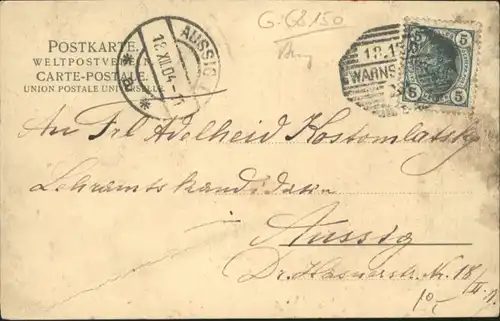 G.68150
POSTKARTE.
WELTPOSTVEREIN
CARTE-POSTALE.
UNION POSTALE UNIVERSELLE
AUSSIG
18.XII.04
* B *
WARNS
5 5
5 5
An Frl Adelheid Kostomlatsky
Lehramtskandidatin
Aussig
Dr. Hasnerstr. Nr. 18/
10,-